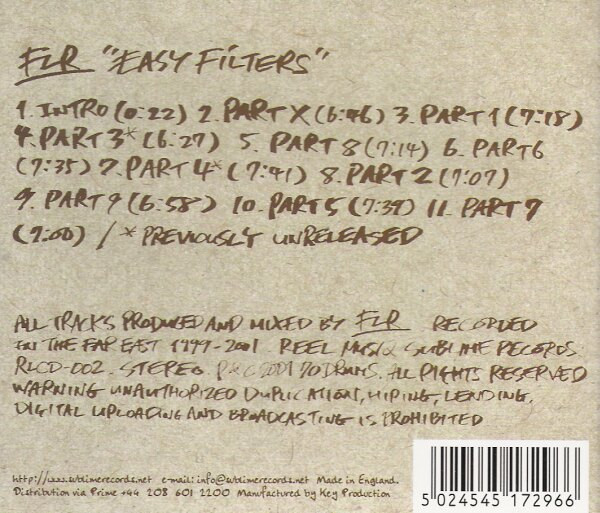 FLR "EASY FILTERS"
1. INTRO (0:22) 2. PART X (6:46) 3. PART 1 (7:18)
4. PART 3* (6:27) 5. PART 8 (7:14) 6. PART 6
(7:35) 7. PART 4* (7:41) 8. PART 2 (7:07)
9. PART 9 (6:58) 10. PART 5 (7:39) 11. PART 7
(7:00) / * PREVIOUSLY UNRELEASED
ALL TRACKS PRODUCED AND MIXED BY FLR RECORDED
IN THE FAR EAST 1999-2001. REEL MUSIQ SUBLIME RECORDS
RLCD-002. STEREO P & C 2001 70 DRUMS. ALL RIGHTS RESERVED
WARNING UNAUTHORIZED DUPLICATION, HIRING, LENDING,
DIGITAL UPLOADING AND BROADCASTING IS PROHIBITED
http://www.sublimerecords.net e-mail: info@sublimerecords.net Made in England.
Distribution via Prime +44 208 601 2200 Manufactured by Key Production
5 024545 172966